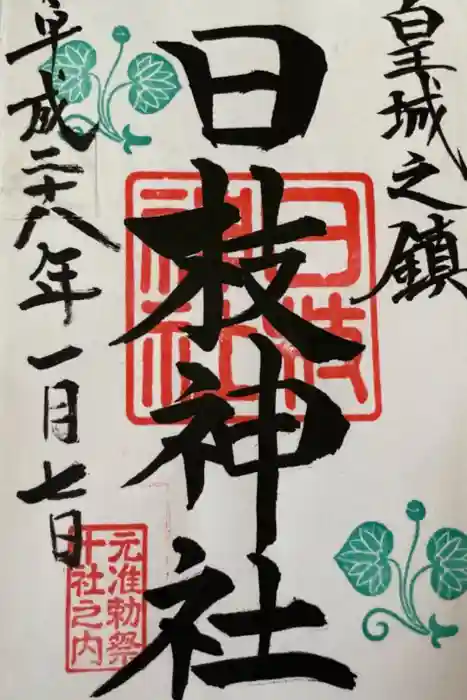 皇城之鎮
日枝神社
日枝神社
平成二十八年一月七日
元准勅祭
十社之内